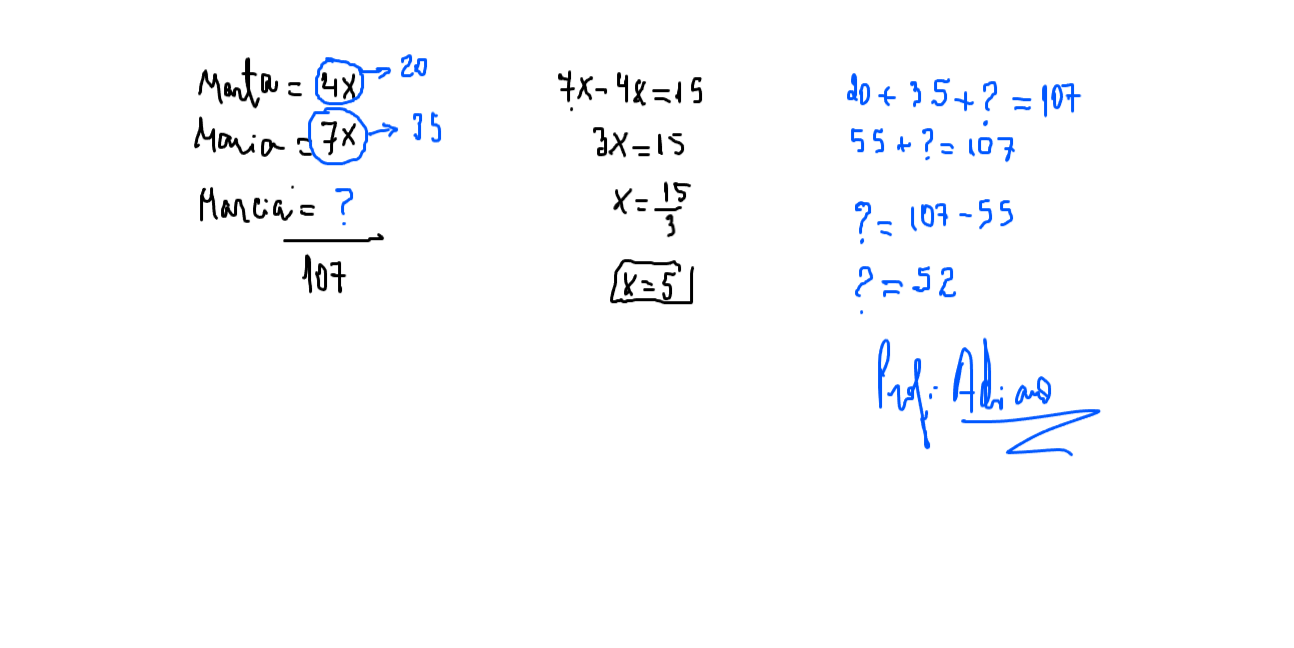 Marta = 4x → 20
Maria = 7x → 35
Marcia = ?
107
7x - 4x = 15
3x = 15
x = 15/3
x = 5
20 + 35 + ? = 107
55 + ? = 107
? = 107 - 55
? = 52
Prof: Adriano